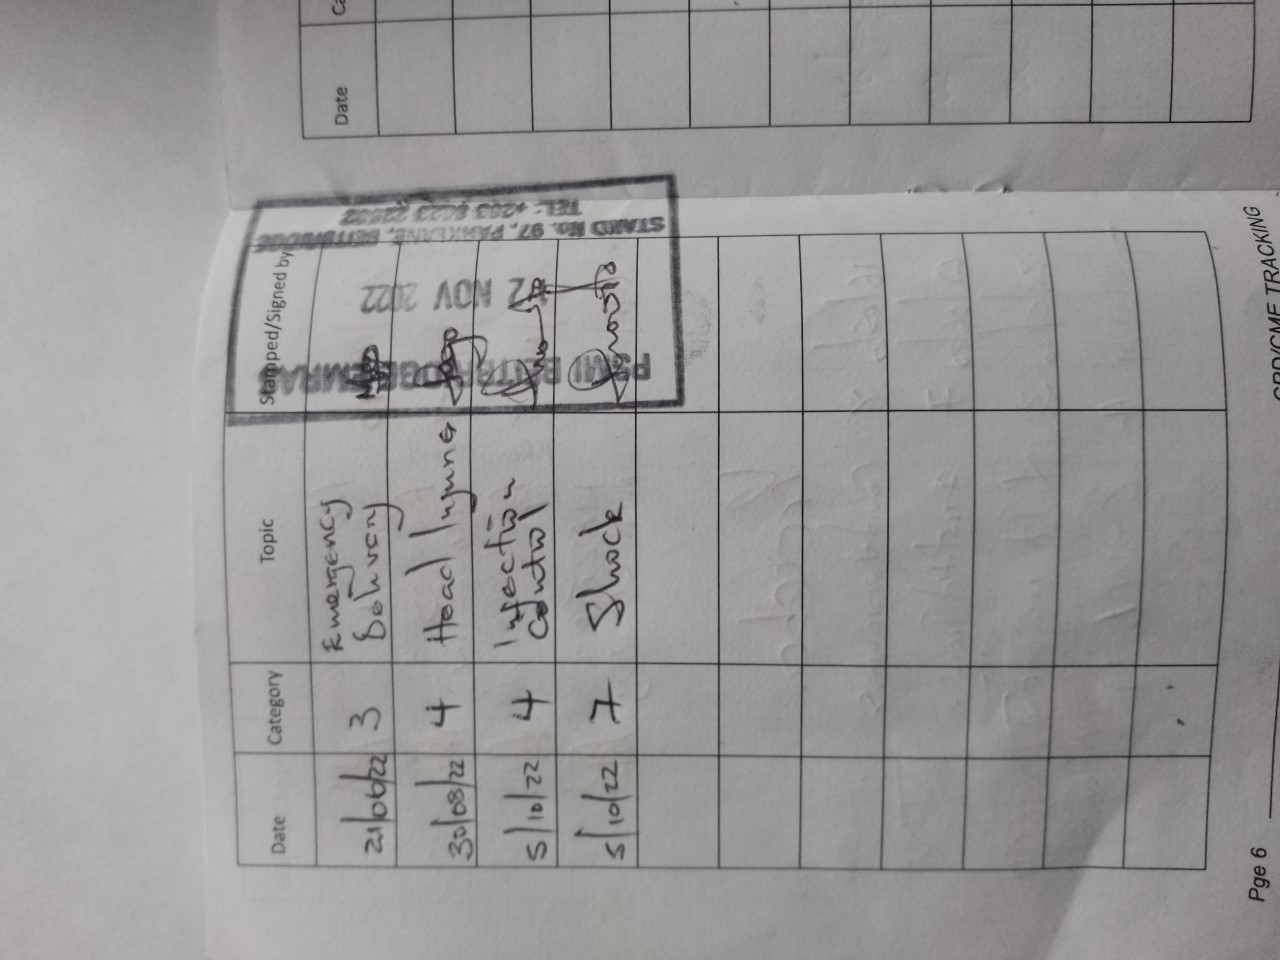 Date
Date Category Topic Stamped/Signed by
21/06/22 3 Emergency
Delivery
30/08/22 4 Head Injuries
5/10/22 4 Infection
Control
5/10/22 7 Shock
PSMI BEITBRIDGE EMRAS
2 NOV 2022
STAND No. 97, PARKLANE, BEITBRIDGE
TEL: +263 8623 22832
Pge 6 CPD/CME TRACKING